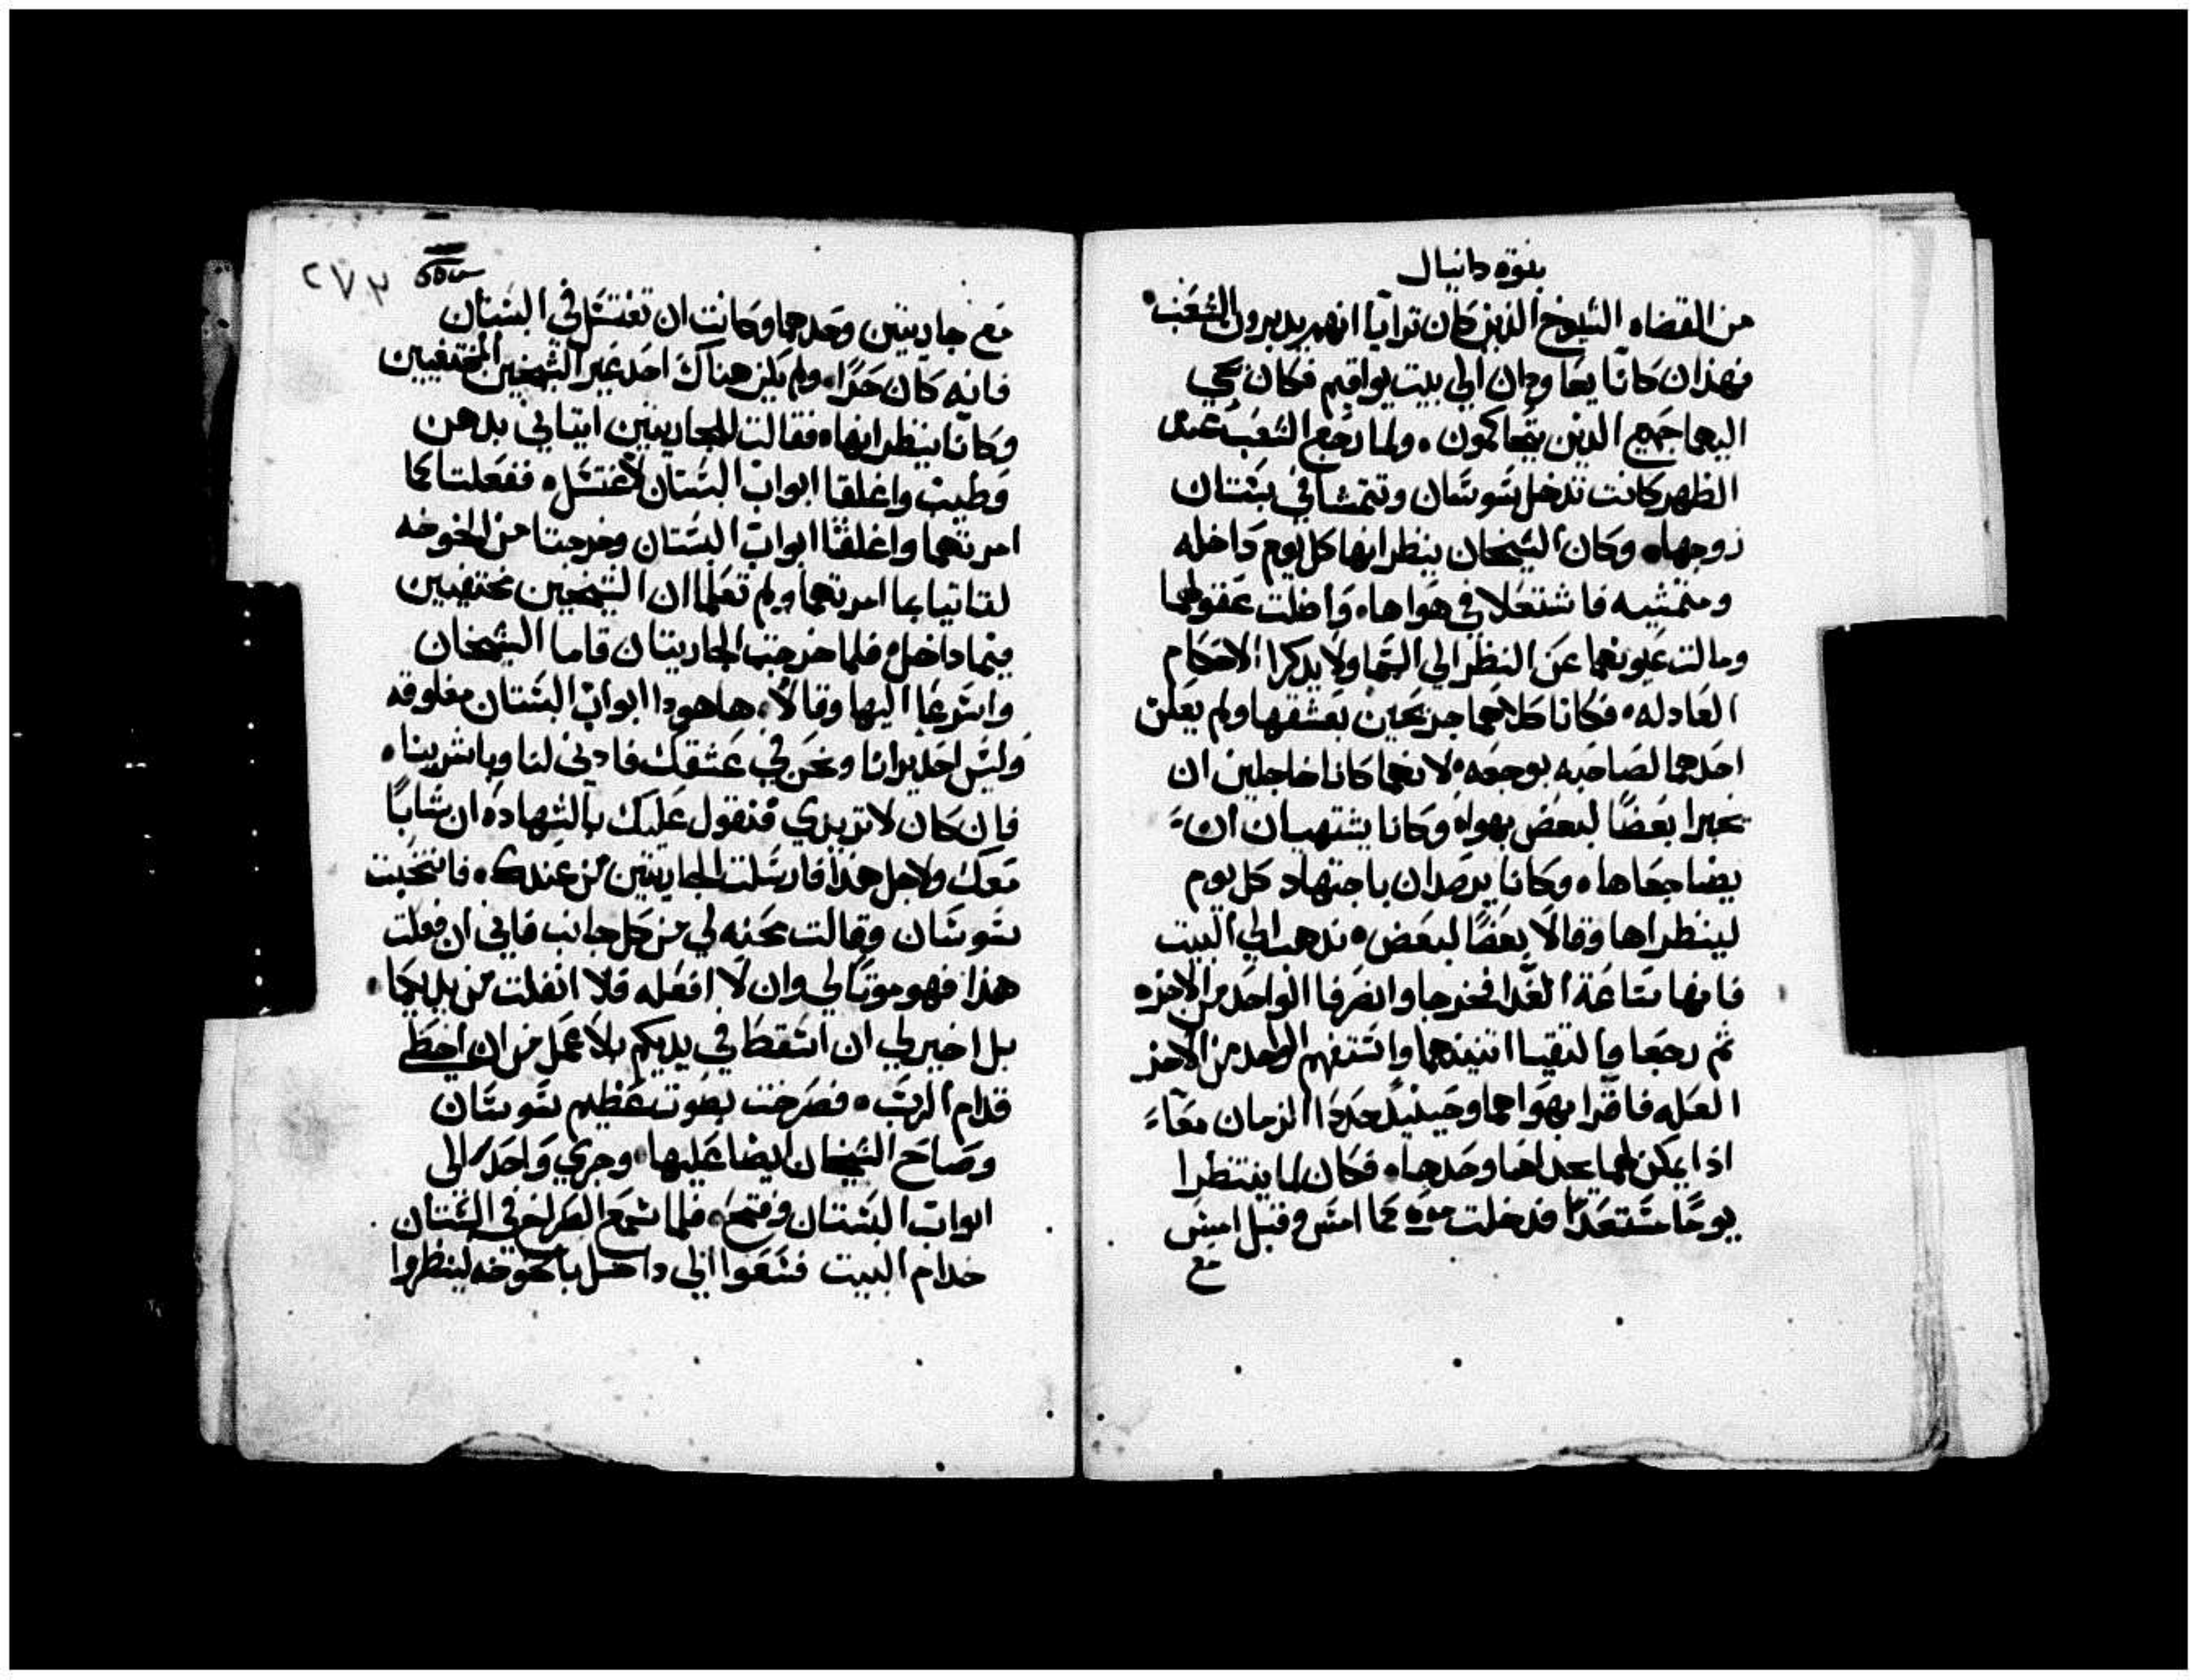 بنوة دانيال
من القضاه الشيوخ الذين كان ترايا انهم يدبرون الشعب
فهذان كانا يعاودان الي بيت يواقيم فكان يجي
اليهما جميع الذين يتحاكمون ولما رجع الشعب عند
الظهر كانت تدخل سوسان وتتمشا في بستان
زوجها وكان الشيخان ينظرانها كل يوم داخله
ومتمشيه فاشتعلا في هواها واضلت عقولهما
ومالت عيونهما عن النظر الي السما ولا يدكرا الاحكام
العادله فكانا كلاهما جريحين بعشقها ولم يعلن
احدهما لصاحبه بوجعه لانهما كانا خاجلين ان
يخبرا بعضا لبعض بهواه وكانا يشتهيان ان
يضاجعاها وكانا يرصدان باجتهاد كل يوم
لينظراها وقالا بعضا لبعض ندهب الي البيت
فانها ساعة الغدا فخرجا وانصرفا الواحد من الاخر
ثم رجعا والتقيا اتنينهما واستفهم الواحد من الاخر
العله فاقرا بهواهما وحينيد حددا الزمان معا
اذا يمكن لهما يجداها وحدها فكان لما ينتظرا
يوما مستعدا فدخلت مره كما امس وقبل امس
مع
٢٧٣
مع جاريتين وحدهما وكانت ان تغتسل في البستان
فانه كان حرا ولم يكن هناك احد غير الشيخين المختفيين
وكانا ينظرانها فقالت للجاريتين ايتياني بدهن
وطيب واغلقا ابواب البستان لاغتسل ففعلتا كما
امرتهما واغلقتا ابواب البستان وخرجتا من الخوخه
لتاتيا بما امرتهما ولم تعلما ان الشيخين مختفيين
ثيما داخل فلما خرجت الجاريتان قاما الشيخان
واسرعا اليها وقالا ها هودا ابواب البستان مغلوقه
وليس احد يرانا ونحن في عشقك فادني لنا وباشرينا
فان كان لا تريدي فنقول عليك بالشهاده ان شابا
معك ولاجل هذا فارسلت الجاريتين من عندك فانتحبت
سوسان وقالت محنه لي من كل جانب فاني ان فعلت
هذا فهو موتا لي وان لا افعله فلا انفلت من يديكما
بل اخير لي ان اسقط في يديكم بلا عمل من ان اخطي
قدام الرب فصرخت بصوت عظيم سوسان
وصاح الشيخان ايضا عليها وجري واحد الي
ابواب البستان وفتح فلما سمع الصراخ في البستان
خدام البيت فسعوا الي داخل بالخوخه لينظروا